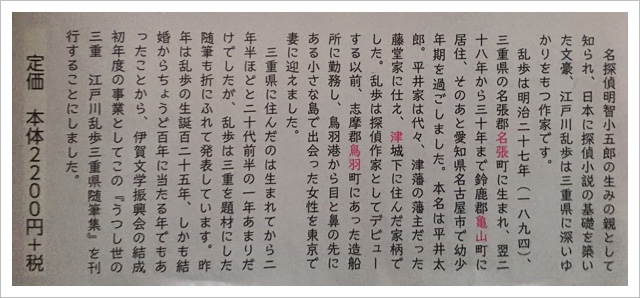 名探偵明智小五郎の生みの親として
知られ、日本に探偵小説の基礎を築い
た文豪、江戸川乱歩は三重県に深いゆ
かりをもつ作家です。
　乱歩は明治二十七年（一八九四）、
三重県の名張郡名張町に生まれ、翌二
十八年から三十年まで鈴鹿郡亀山町に
居住、そのあと愛知県名古屋市で幼少
年期を過ごしました。本名は平井太
郎。平井家は代々、津藩の藩主だった
藤堂家に仕え、津城下に住んだ家柄で
した。乱歩は探偵作家としてデビュー
する以前、志摩郡鳥羽町にあった造船
所に勤務し、鳥羽港から目と鼻の先に
ある小さな島で出会った女性を東京で
妻に迎えました。
　三重県に住んだのは生まれてから二
年半ほどと二十代前半の一年あまりだ
けでしたが、乱歩は三重を題材にした
随筆も折にふれて発表しています。昨
年は乱歩の生誕百二十五年、しかも結
婚からちょうど百年に当たる年でもあ
ったことから、伊賀文学振興会の結成
初年度の事業としてこの『うつし世の
三重　江戸川乱歩三重県随筆集』を刊
行することにしました。
定価　本体2200円＋税